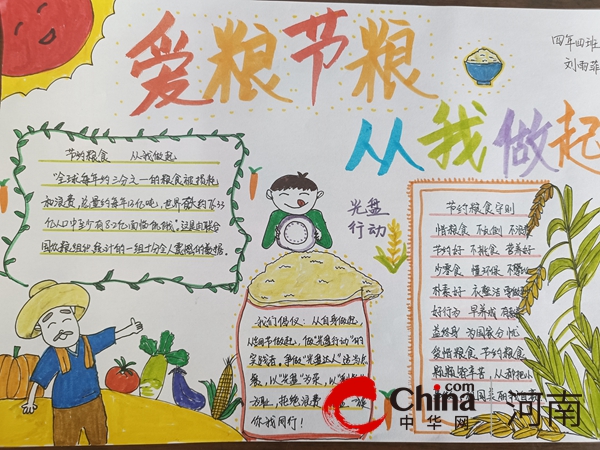 爱粮节粮
从我做起
四年四班
刘雨菲
节约粮食 从我做起
"全球每年约三分之一的粮食被损耗
和浪费,总量约每年13亿吨,世界
亿人口中至少有8.2亿面临饥饿,"这是由联合
国农粮组织统计的一组十分令人震撼的数据。
光盘
行动
我们倡议:从自身做起,
从细节做起,做"光盘行动"的
实践者,争做"光盘达人",这为
餐,以"光盘"为荣,以
为耻,拒绝浪费
你我同行!
节约粮食守则
惜粮食 不
节约好 不挑食 营养好
少零食 懂环保 不
朴素好 衣整洁
好行为 早养成
益终身 为国家分忧
爱惜粮食 节约粮食
粒粒皆辛苦,从
China.com
中华网
河南